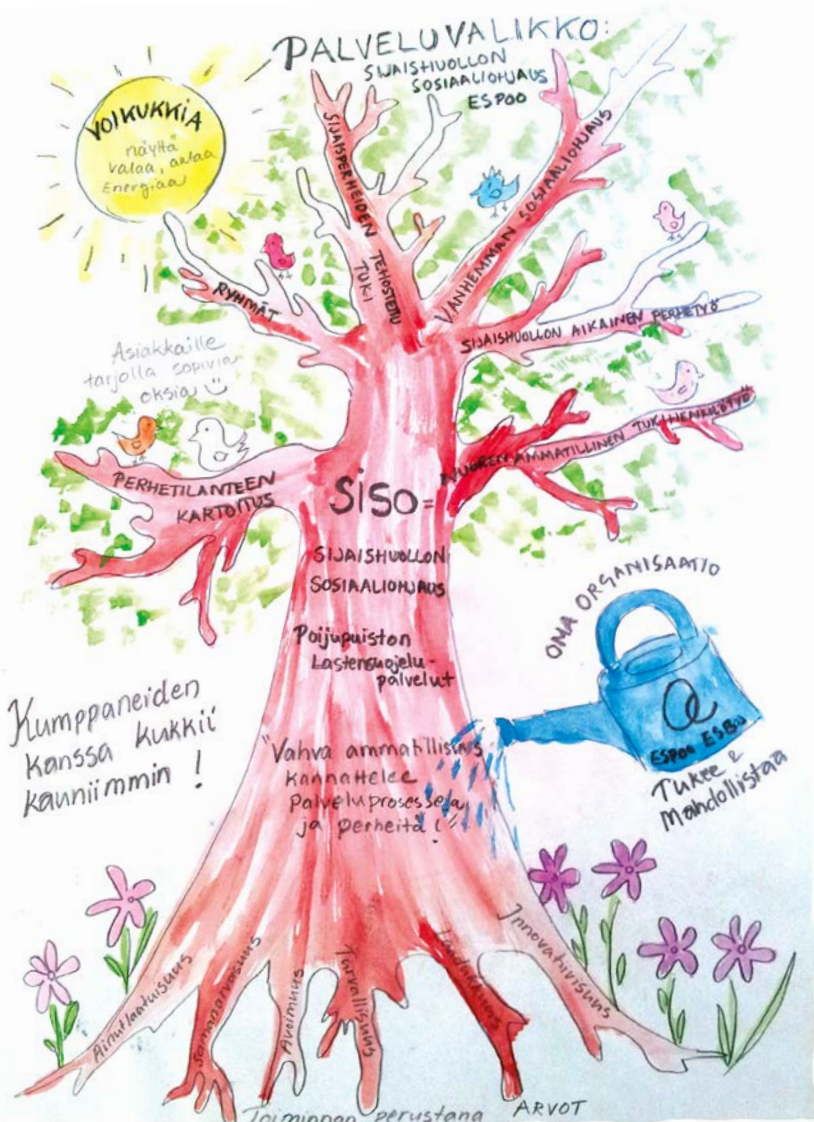 PALVELUVALIKKO:
SIJAISHUOLLON
SOSIAALIOHJAUS
ESPOO
VOIKUKKIA
näyttä
valaa, antaa
Energiaa
SIJAISPERHEIDEN TEHOSTETTU
TUKI
VANHEMMAN SOSIAALIOHJAUS
RYHMÄT
SIJAISHUOLLON AIKAINEN PERHETYÖ
Asiakkaille
tarjolla sopivia
oksia
NUOREN AMMATILLINEN TUKIHENKILÖTYÖ
PERHETILANTEEN
KARTOITUS
SISO=
SIJAISHUOLLON
SOSIAALIOHJAUS
Poijupuiston
Lastensuojelu-
palvelut
OMA ORGANISAATIO
ESPOO ESBO
Tukee &
Mahdollistaa
Kumppaneiden
kanssa kukkii
kauniimmin !
"Vahva ammatillisuus
kannattelee
Palveluprosesseja
ja perheitä!"
Ainutlaatuisuus
Samanarvoisuus
Avoimuus
Turvallisuus
Laadukkuus
Innovatiivisuus
Toiminnan perustana ARVOT